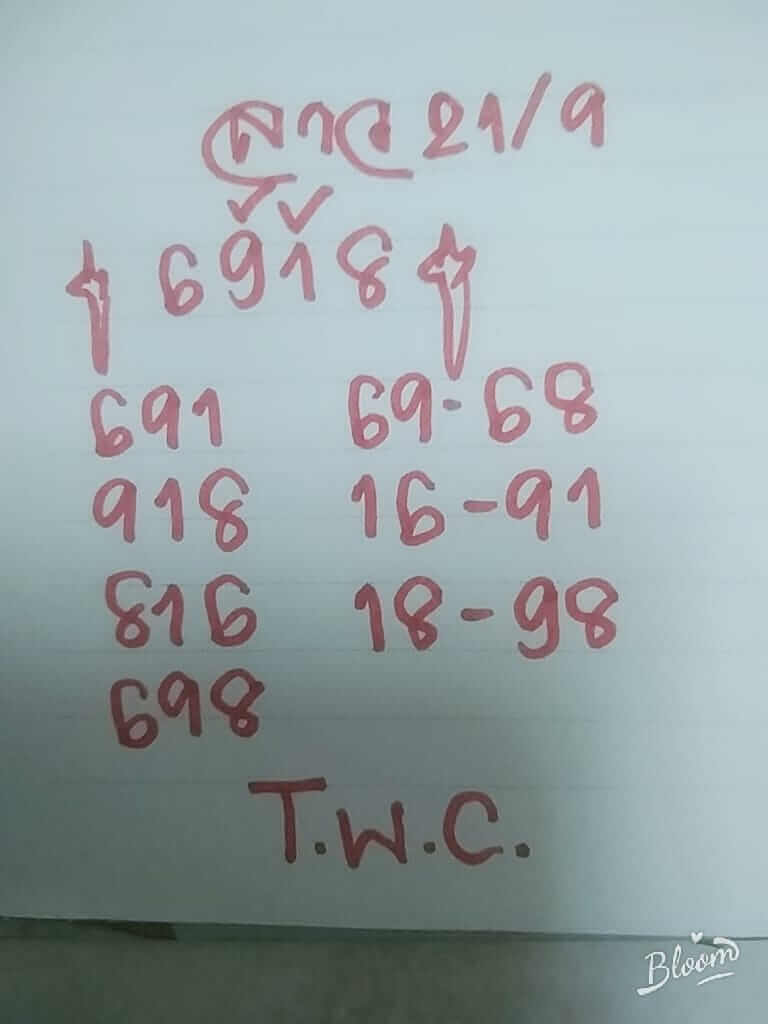 ลาว 21/9
6918
691 69-68
918 16-91
816 18-98
698
T.W.C.
Bloom